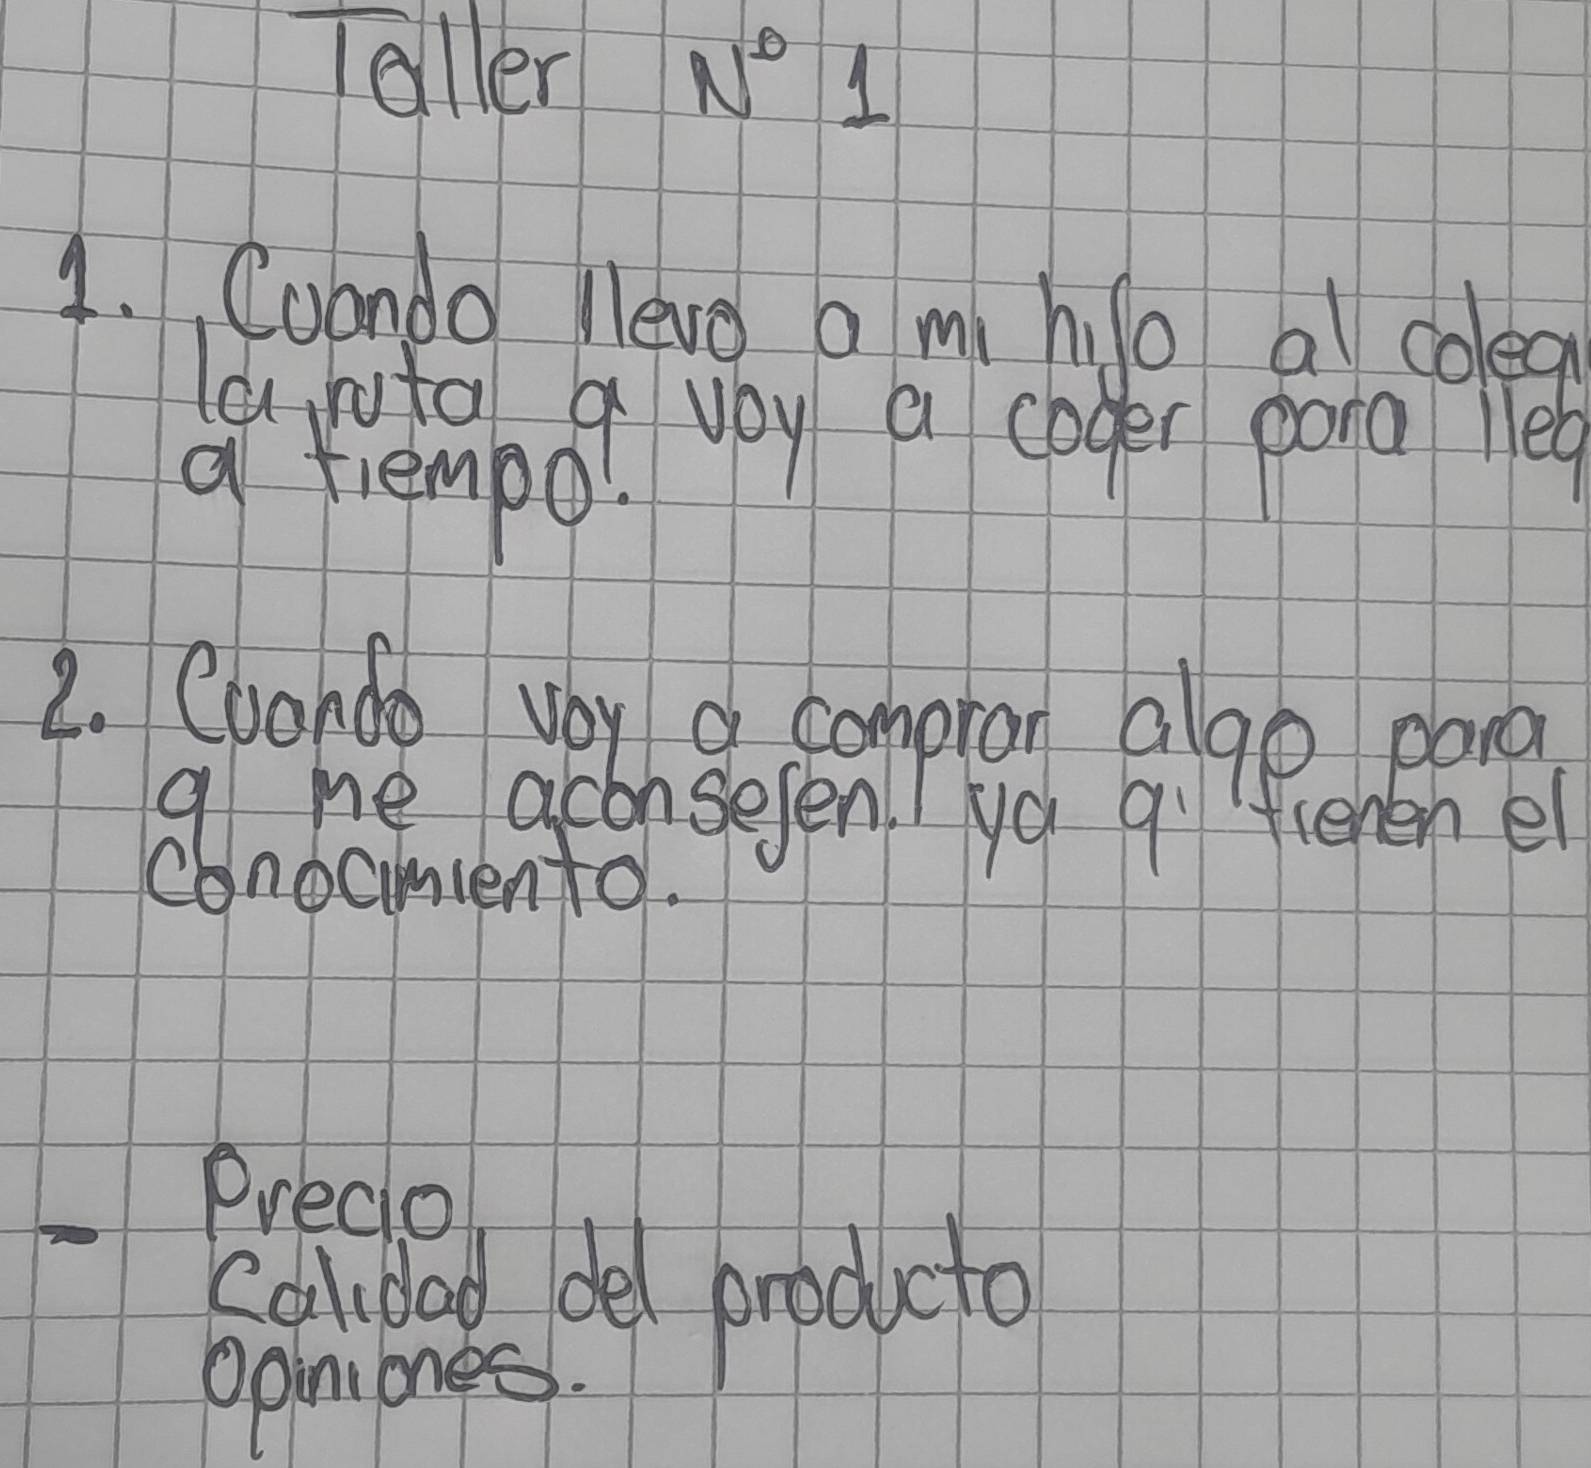 Taller Nº 1
1. Cuando llevo a mi hijo al colegi
la ruta q voy a coger para lleg
a tiempo.
2. Cuando voy a comprar algo para
q me aconsejen. ya q tienen el
conocimiento.
- Precio
Calidad del producto
Opiniones.